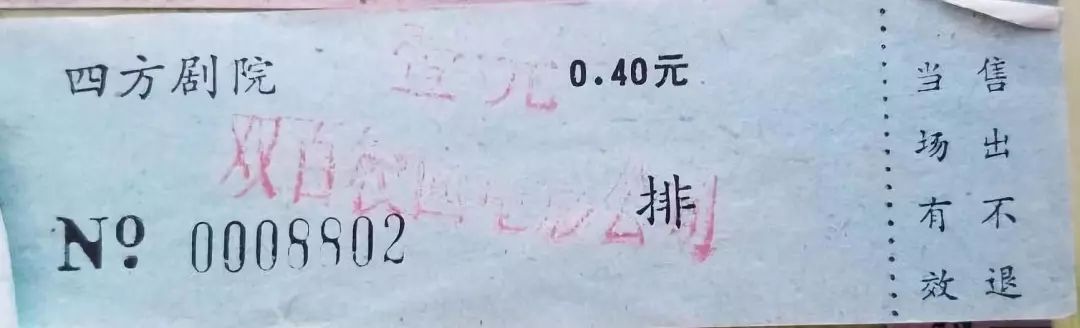 四方剧院
0.40元
排
№ 0008802
售出不退
当场有效